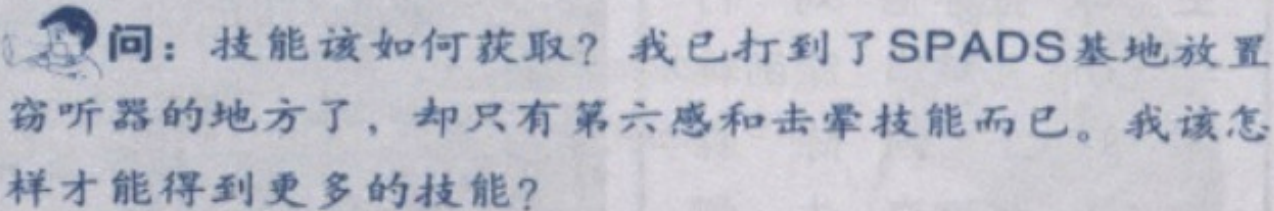 问：技能该如何获取？我已打到了SPADS基地放置
窃听器的地方了，却只有第六感和击晕技能而已。我该怎
样才能得到更多的技能？